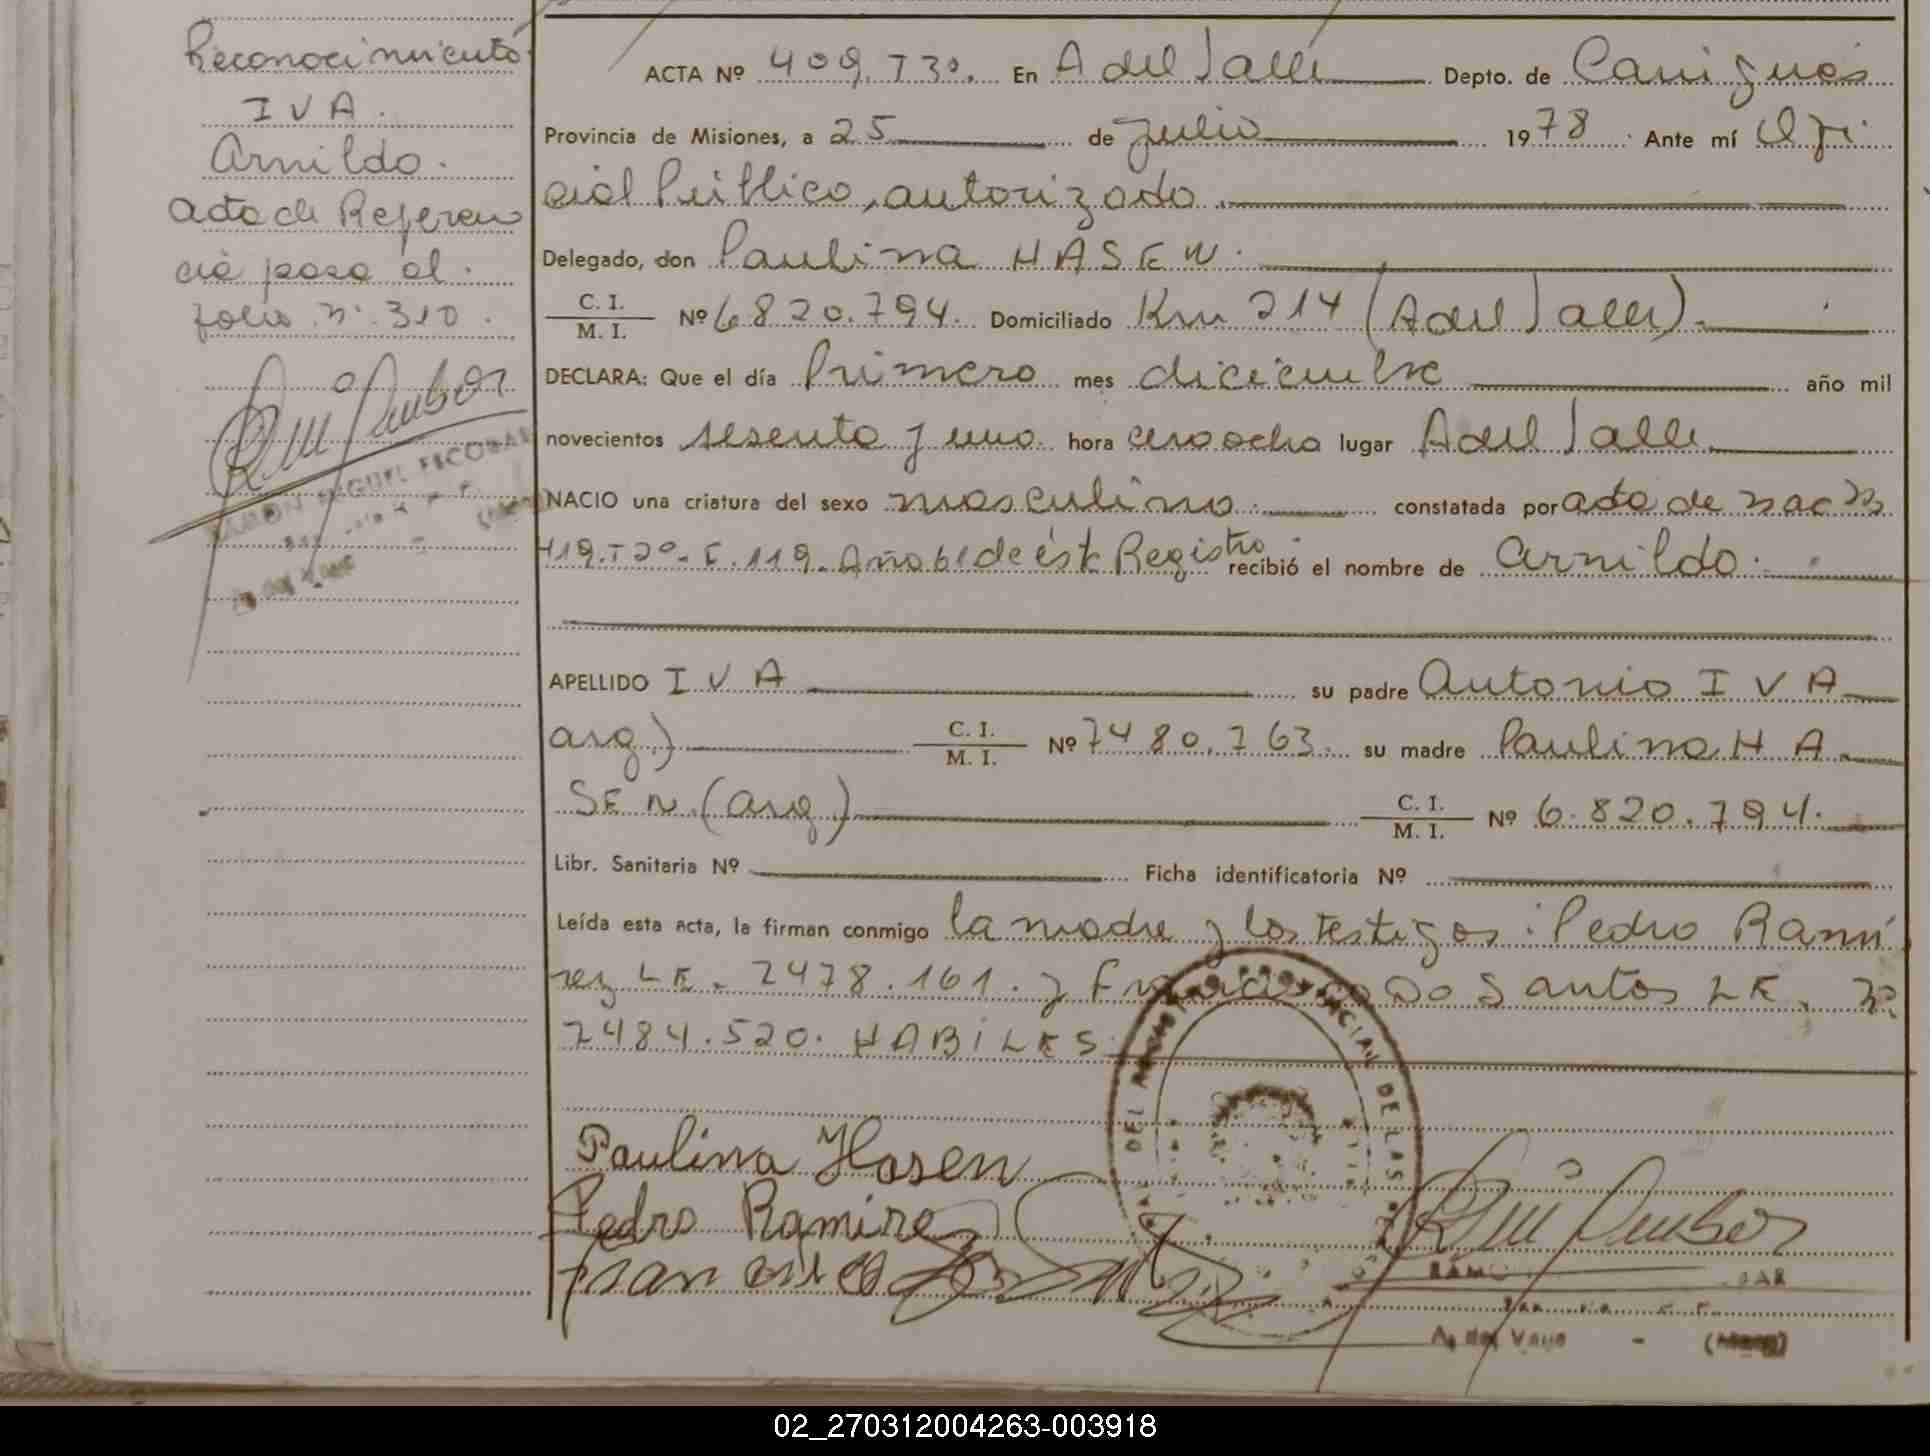 Reconocimiento
IVA.
Arnildo.
Acta de Referen
cia pasa al.
folio nº 310.
RAMON MIGUEL ESCOBAR
ACTA Nº 409. Tº 3º. En A del Valle Depto. de Cainguás
Provincia de Misiones, a 25 de julio 1978. Ante mí Ofi
cial Público, autorizado.
Delegado, don Paulina HASEN.
C. I. / M. I. Nº 6820.794. Domiciliado Km 214 (A del Valle).
DECLARA: Que el día Primero mes diciembre año mil
novecientos sesenta y uno hora cero ocho lugar A del Valle
NACIO una criatura del sexo masculino. constatada por acta de nac Nº
419. Tº 2º- F. 119. Año 61 de éste Registro. recibió el nombre de Arnildo.
APELLIDO IVA su padre Antonio IVA
arg.) C. I. / M. I. Nº 7480.763. su madre Paulina HA
SEN. (arg.) C. I. / M. I. Nº 6.820.794.
Libr. Sanitaria Nº Ficha identificatoria Nº
Leída esta acta, la firman conmigo la madre y los testigos: Pedro Ramí
rez LE. 7478.161. y Francisco Do Santos LE. Nº
7484.520. HABILES
DEL REGISTRO PROVINCIAL DE LAS
Paulina Hasen
Pedro Ramirez
Francisco Dos Santos
A. del Valle - (Mnes)
02_270312004263-003918